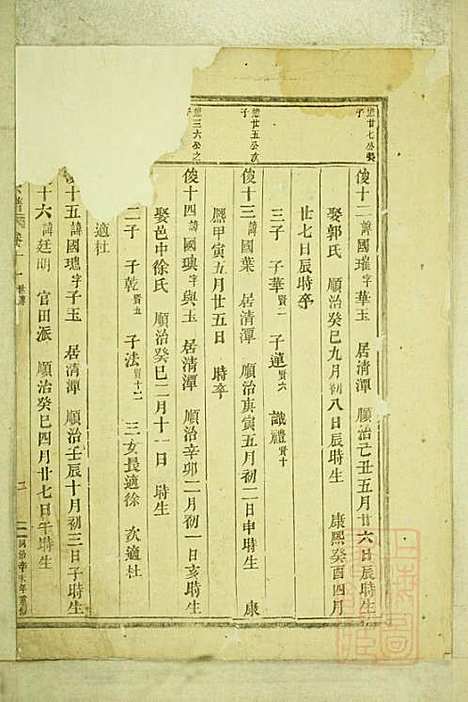 進廿七公長子
俊十二 諱國璀 字華玉 居清潭 順治己丑五月廿六日辰時生
娶郭氏 順治癸巳九月初八日辰時生 康熙癸酉四月
廿七日辰時卒
三子 子華 賢一 子蓮 賢六 識禮 賢十
進廿五公次子
俊十三 諱國葉 居清潭 順治庚寅五月初二日申時生 康
熙甲寅五月廿五日 時卒
進三六公之子
俊十四 諱國璵 字與玉 居清潭 順治辛卯二月初一日亥時生
娶邑中徐氏 順治癸巳二月十一日 時生
二子 子乾 賢五 子法 賢十二 三女長適徐 次適杜
適杜
十五 諱國璁 字子玉 居清潭 順治壬辰十月初三日子時生
十六 諱廷明 官田派 順治癸巳四月廿七日午時生
卷十一 世傳
同治辛未年重修